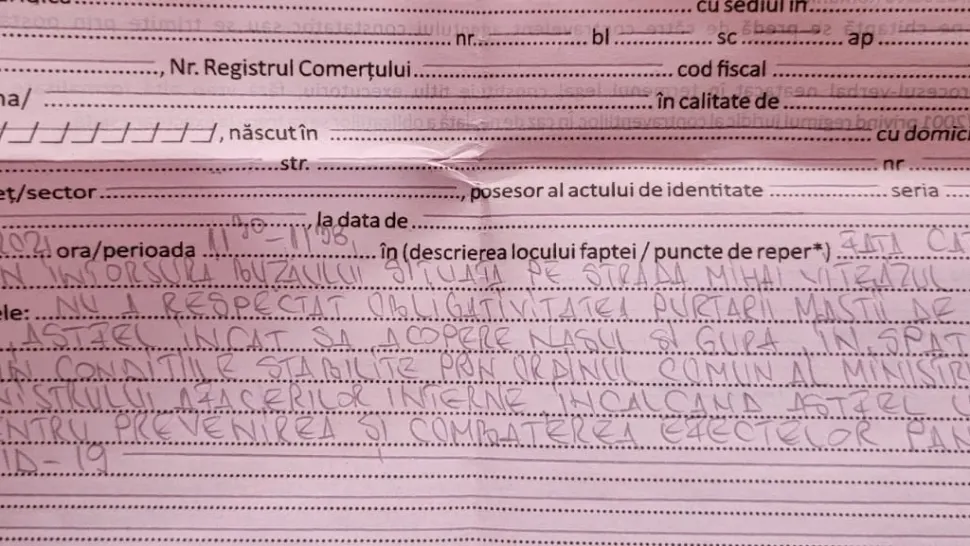 cu sediul în
nr. bl sc ap
, Nr. Registrul Comerțului cod fiscal
na/ în calitate de
/ / / / / / /, născut în cu domici
str. nr
eț/sector , posesor al actului de identitate seria
, la data de
2021 ora/perioada 1130-1138, în (descrierea locului faptei / puncte de reper*) FATA CAT
N INTORSURA BUZAULUI SITUATA PE STRADA MIHAI VITEAZUL
ele: NU A RESPECTAT OBLIGATIVITATEA PURTARII MASTII DE
ASTFEL INCAT SA ACOPERE NASU SI GURA, IN SPAT
IN CONDITIILE STABILITE PRIN ORDINUL COMUN AL MINISTR
NISTRULUI AFACERILOR INTERNE, INCALCAND ASTFEL
ENTRU PREVENIREA SI COMBATEREA EFECTELOR PAN
ID-19